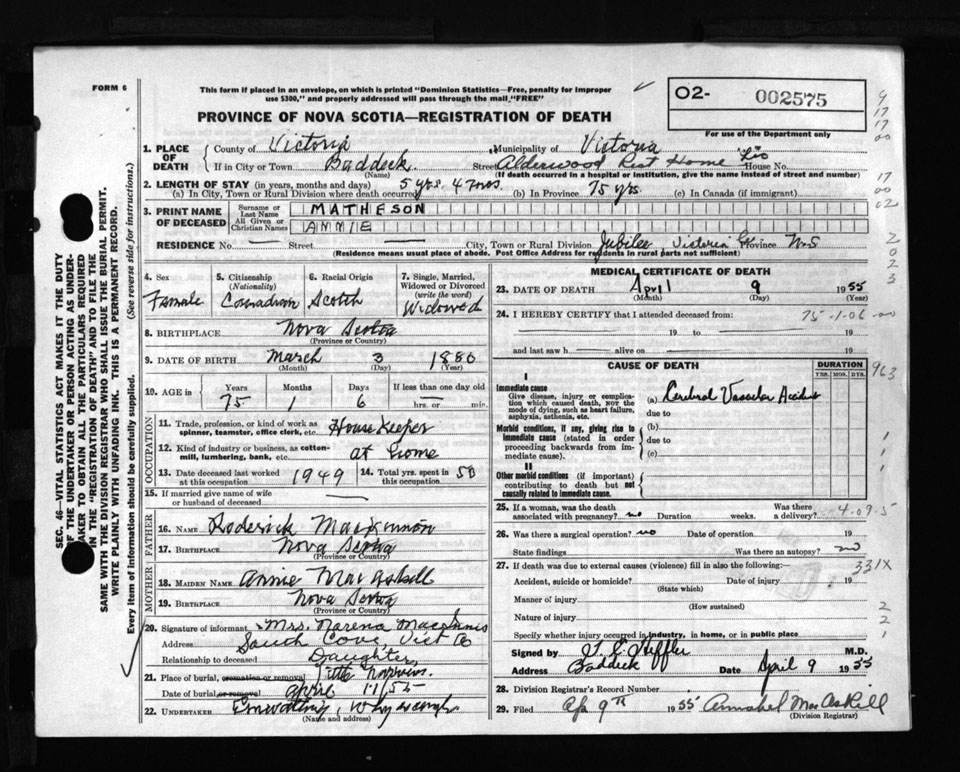 FORM 6
This form if placed in an envelope, on which is printed "Dominion Statistics—Free, penalty for improper
use $300," and properly addressed will pass through the mail "FREE"
02- 002575
For use of the Department only
PROVINCE OF NOVA SCOTIA—REGISTRATION OF DEATH
1. PLACE OF DEATH
County of Victoria Municipality of Victoria
If in City or Town Baddeck Street Alderwood Rest Home House No.
(Name) (If death occurred in a hospital or institution, give the name instead of street and number)
2. LENGTH OF STAY (in years, months and days) 5 yrs. 4 mos. 75 yrs.
(a) In City, Town or Rural Division where death occurred (b) In Province (c) In Canada (if immigrant)
3. PRINT NAME OF DECEASED
Surname or Last Name MATHESON
All Given or Christian Names ANNIE
RESIDENCE No. — Street — City, Town or Rural Division Jubilee, Victoria Co Province N-S
(Residence means usual place of abode. Post Office Address for residents in rural parts not sufficient)
4. Sex Female
5. Citizenship (Nationality) Canadian
6. Racial Origin Scotch
7. Single, Married, Widowed or Divorced (write the word) Widowed
8. BIRTHPLACE Nova Scotia
(Province or Country)
9. DATE OF BIRTH March 3 1880
(Month) (Day) (Year)
10. AGE in Years 75 Months 1 Days 6 If less than one day old — hrs. or — min.
OCCUPATION
11. Trade, profession, or kind of work as spinner, teamster, office clerk, etc. House Keeper
12. Kind of industry or business, as cotton-mill, lumbering, bank, etc. at home
13. Date deceased last worked at this occupation 1949
14. Total yrs. spent in this occupation 50
15. If married give name of wife or husband of deceased —
FATHER
16. NAME Roderick MacKinnon
17. BIRTHPLACE Nova Scotia
(Province or Country)
MOTHER
18. MAIDEN NAME Annie MacAskill
19. BIRTHPLACE Nova Scotia
(Province or Country)
20. Signature of informant Mrs. Narena MacInnis
Address South Cove Vict Co
Relationship to deceased Daughter
21. Place of burial, cremation or removal Little Narrows.
Date of burial or removal April 11/55
22. UNDERTAKER Whycocomagh
(Name and address)
MEDICAL CERTIFICATE OF DEATH
23. DATE OF DEATH April 9 1955
(Month) (Day) (Year)
24. I HEREBY CERTIFY that I attended deceased from: 75-1-06
19 to 19
and last saw h alive on 19
CAUSE OF DEATH
DURATION
YRS. MOS. DYS.
963
I
Immediate cause
Give disease, injury or complication which caused death, NOT the mode of dying, such as heart failure, asphyxia, asthenia, etc.
(a) Cerebral Vascular Accident
due to
Morbid conditions, if any, giving rise to immediate cause (stated in order proceeding backwards from immediate cause).
(b)
due to
(c)
II
Other morbid conditions (if important) contributing to death but not causally related to immediate cause.
25. If a woman, was the death associated with pregnancy? no Duration weeks. Was there a delivery?
4-09-5
26. Was there a surgical operation? no Date of operation 19
State findings Was there an autopsy? no
27. If death was due to external causes (violence) fill in also the following:— 331X
Accident, suicide or homicide? Date of injury 19
(State which)
Manner of injury
(How sustained)
Nature of injury
Specify whether injury occurred in industry, in home, or in public place
Signed by M.D.
Address Baddeck Date April 9 1955
28. Division Registrar's Record Number
29. Filed Ap 9th 1955 Annabel MacAskill
(Division Registrar)
SEC. 46—VITAL STATISTICS ACT MAKES IT THE DUTY
OF THE UNDERTAKER OR PERSON ACTING AS UNDER-
TAKER TO OBTAIN ALL THE PARTICULARS REQUIRED
IN THE "REGISTRATION OF DEATH" AND TO FILE THE
SAME WITH THE DIVISION REGISTRAR WHO SHALL ISSUE THE BURIAL PERMIT.
WRITE PLAINLY WITH UNFADING INK. THIS IS A PERMANENT RECORD.
Every item of Information should be carefully supplied. (See reverse side for instructions.)
9
17
17
00
17
00
02
2
0
2
3
1
1
1
2
2
1